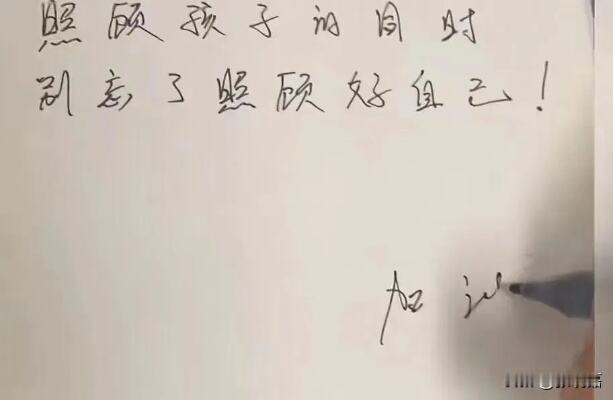 照顾孩子的同时
别忘了照顾好自己！
加